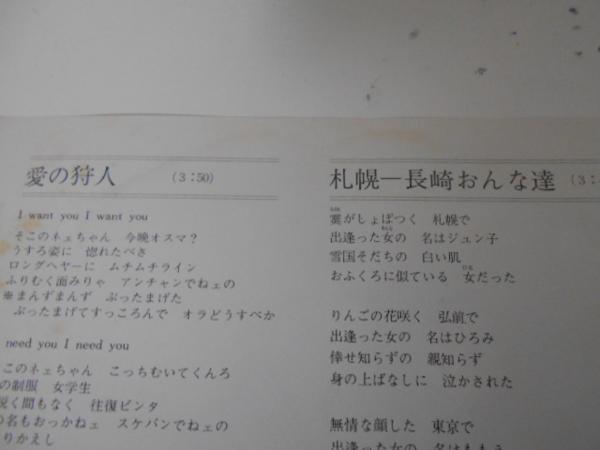 愛の狩人 (3:50)
I want you I want you
そこのネェちゃん 今晩オスマ?
うすろ姿に 惚れたべさ
ロングヘヤーに ムチムチライン
ふりむく面みりゃ アンチャンでねェの
※まんずまんず ぶったまげた
ぶったまげてすっころんで オラどうすべか
need you I need you
このネェちゃん こっちむいてくんろ
の制服 女学生
く間もなく 往復ビンタ
の名もおっかねェ スケバンでねェの
りかえし
札幌―長崎おんな達 (3:
がしょぼつく 札幌で
出逢った女の 名はジュン子
雪国そだちの 白い肌
おふくろに似ている 女だった
りんごの花咲く 弘前で
出逢った女の 名はひろみ
倖せ知らずの 親知らず
身の上ばなしに 泣かされた
無情な顔した 東京で
出逢った女の 名はもも